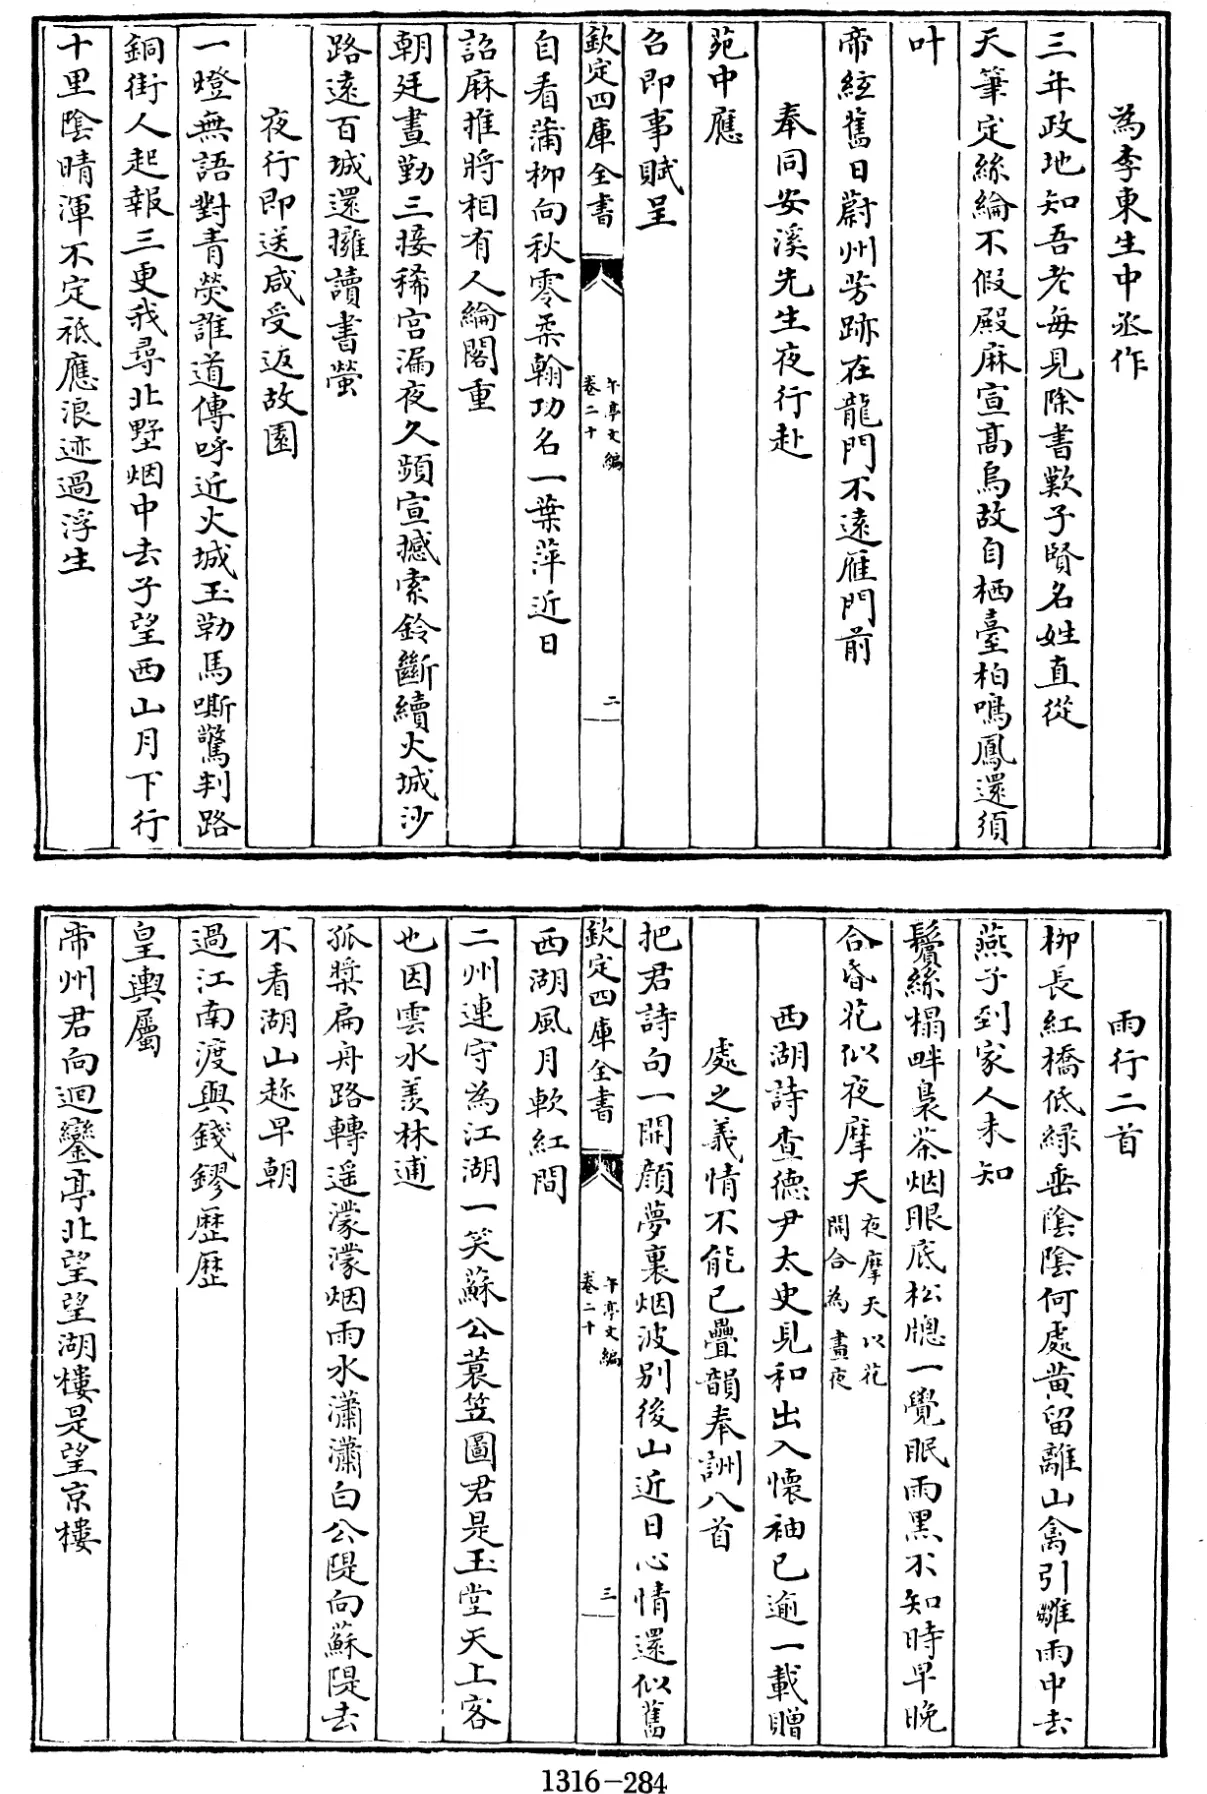 為李東生中丞作
三年政地知吾老每見除書歎子賢名姓直從
天筆定絲綸不假殿麻宣髙烏故自栖臺柏鳴鳳還須
叶
帝絃舊日蔚州芳跡在龍門不逺雁門前
奉同安溪先生夜行赴
苑中應
召即事賦呈
欽定四庫全書
午亭文編
卷二十
二
自看蒲柳向秋零柔翰功名一葉萍近日
詔麻推將相有人綸閣重
朝廷晝勤三接稀宫漏夜久頻宣撼索鈴斷續火城沙
路逺百城還擁讀書螢
夜行即送咸受返故園
一燈無語對青熒誰道傳呼近火城玉勒馬嘶驚判路
銅街人起報三更我尋北墅烟中去子望西山月下行
十里陰晴渾不定祗應浪迹過浮生
雨行二首
栁長紅橋低緑垂陰陰何處黄留離山禽引雛雨中去
燕子到家人未知
鬢絲榻畔裊茶烟眼底松牕一覺眠雨黒不知時早晚
合昏花似夜摩天夜摩天以花
開合為晝夜
西湖詩查德尹太史見和出入懐袖已逾一載贈
處之義情不能已疊韻奉詶八首
把君詩句一開顔夢裏烟波别後山近日心情還似舊
欽定四庫全書
午亭文編
卷二十
三
西湖風月軟紅間
二州連守為江湖一笑蘇公蓑笠圖君是玉堂天上客
也因雲水羨林逋
孤槳扁舟路轉遥濛濛烟雨水瀟瀟白公隄向蘇隄去
不看湖山趂早朝
過江南渡與錢鏐歴歴
皇輿屬
帝州君向迴鑾亭北望望湖樓是望京樓
1316-284